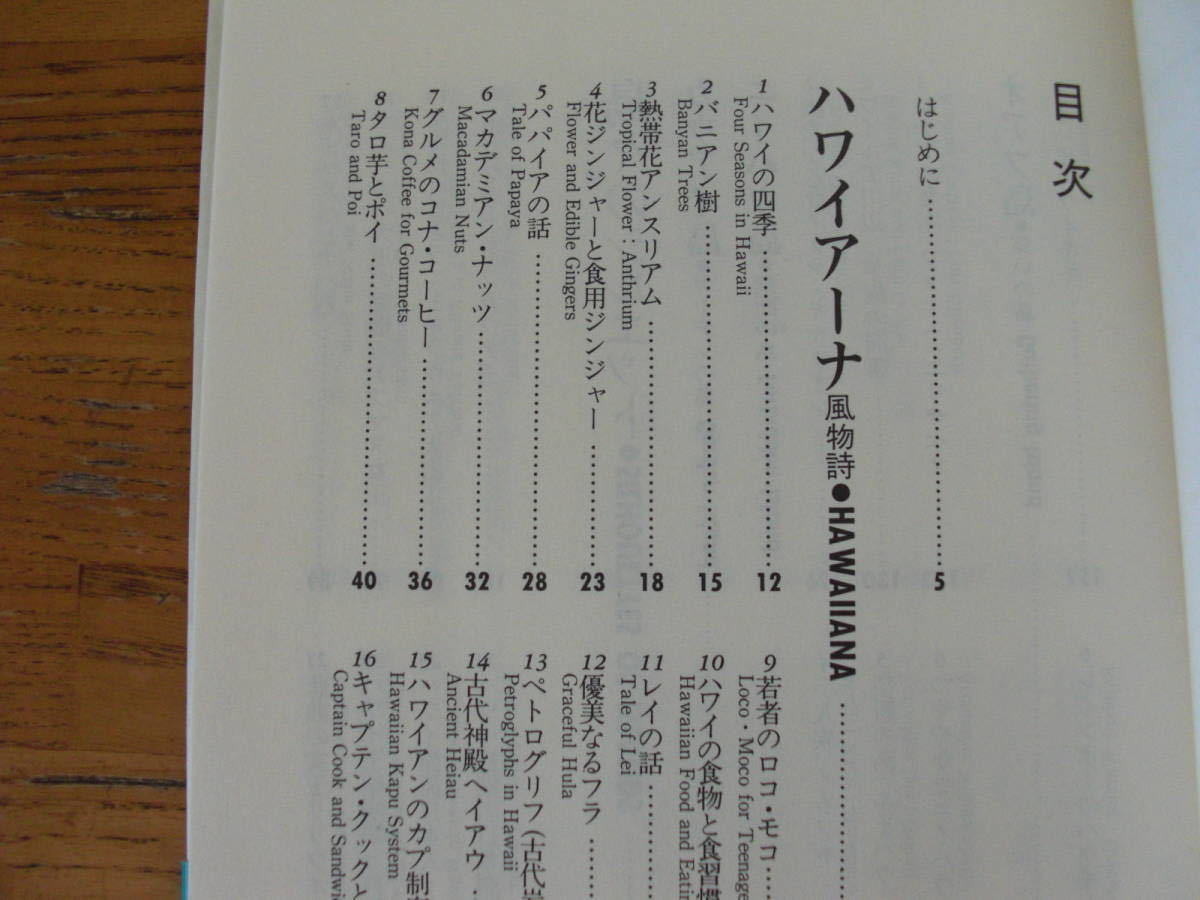 目次
はじめに……………………5
ハワイアーナ風物詩●HAWAIIANA……………
1 ハワイの四季……………………12
Four Seasons in Hawaii
2 バニアン樹……………………15
Banyan Trees
3 熱帯花アンスリアム……………………18
Tropical Flower : Anthrium
4 花ジンジャーと食用ジンジャー……………23
Flower and Edible Gingers
5 パパイアの話……………………28
Tale of Papaya
6 マカデミアン・ナッツ……………………32
Macadamian Nuts
7 グルメのコナ・コーヒー……………………36
Kona Coffee for Gourmets
8 タロ芋とポイ……………………40
Taro and Poi
9 若者のロコ・モコ……
Loco・Moco for Teenage
10 ハワイの食物と食習慣
Hawaiian Food and Eatin
11 レイの話……………
Tale of Lei
12 優美なるフラ……
Graceful Hula
13 ペトログリフ(古代
Petroglyphs in Hawaii
14 古代神殿ヘイアウ…
Ancient Heiau
15 ハワイアンのカプ制
Hawaiian Kapu System
16 キャプテン・クックと
Captain Cook and Sandwi